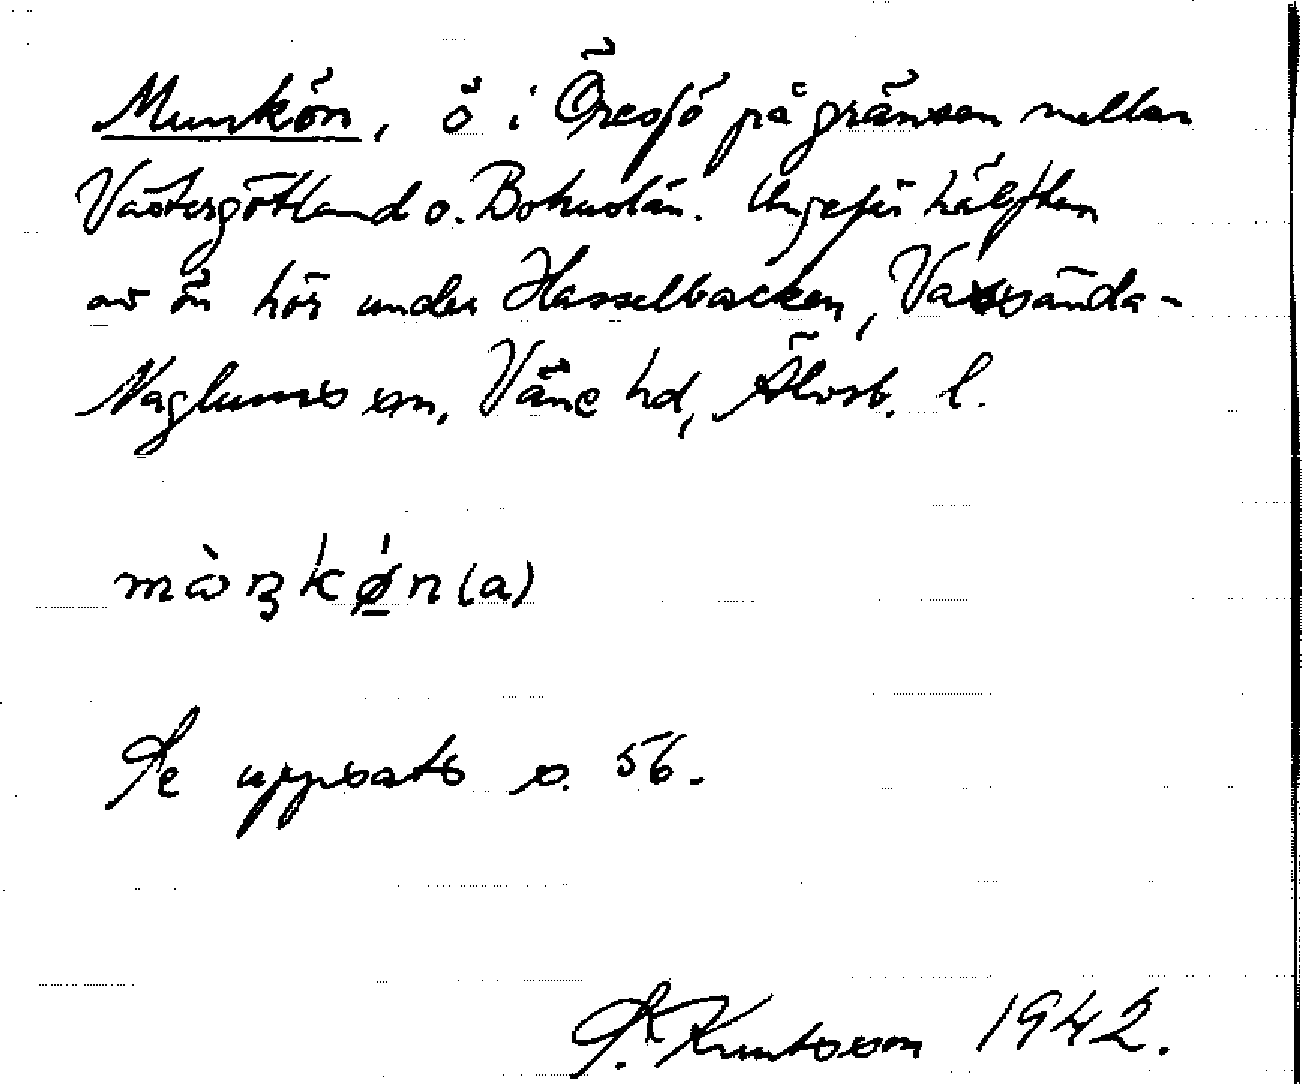 Munkön, ö i Öresjö på gränsen mellan
Västergötland o. Bohuslän. Ungefär hälften
av ön hör under Hasselbacken, Vassända-
Naglums sn, Väne hd, Älvsb. l.
mὼŋkǿn(a)
Se uppsats s. 56.
Knutsson 1942.